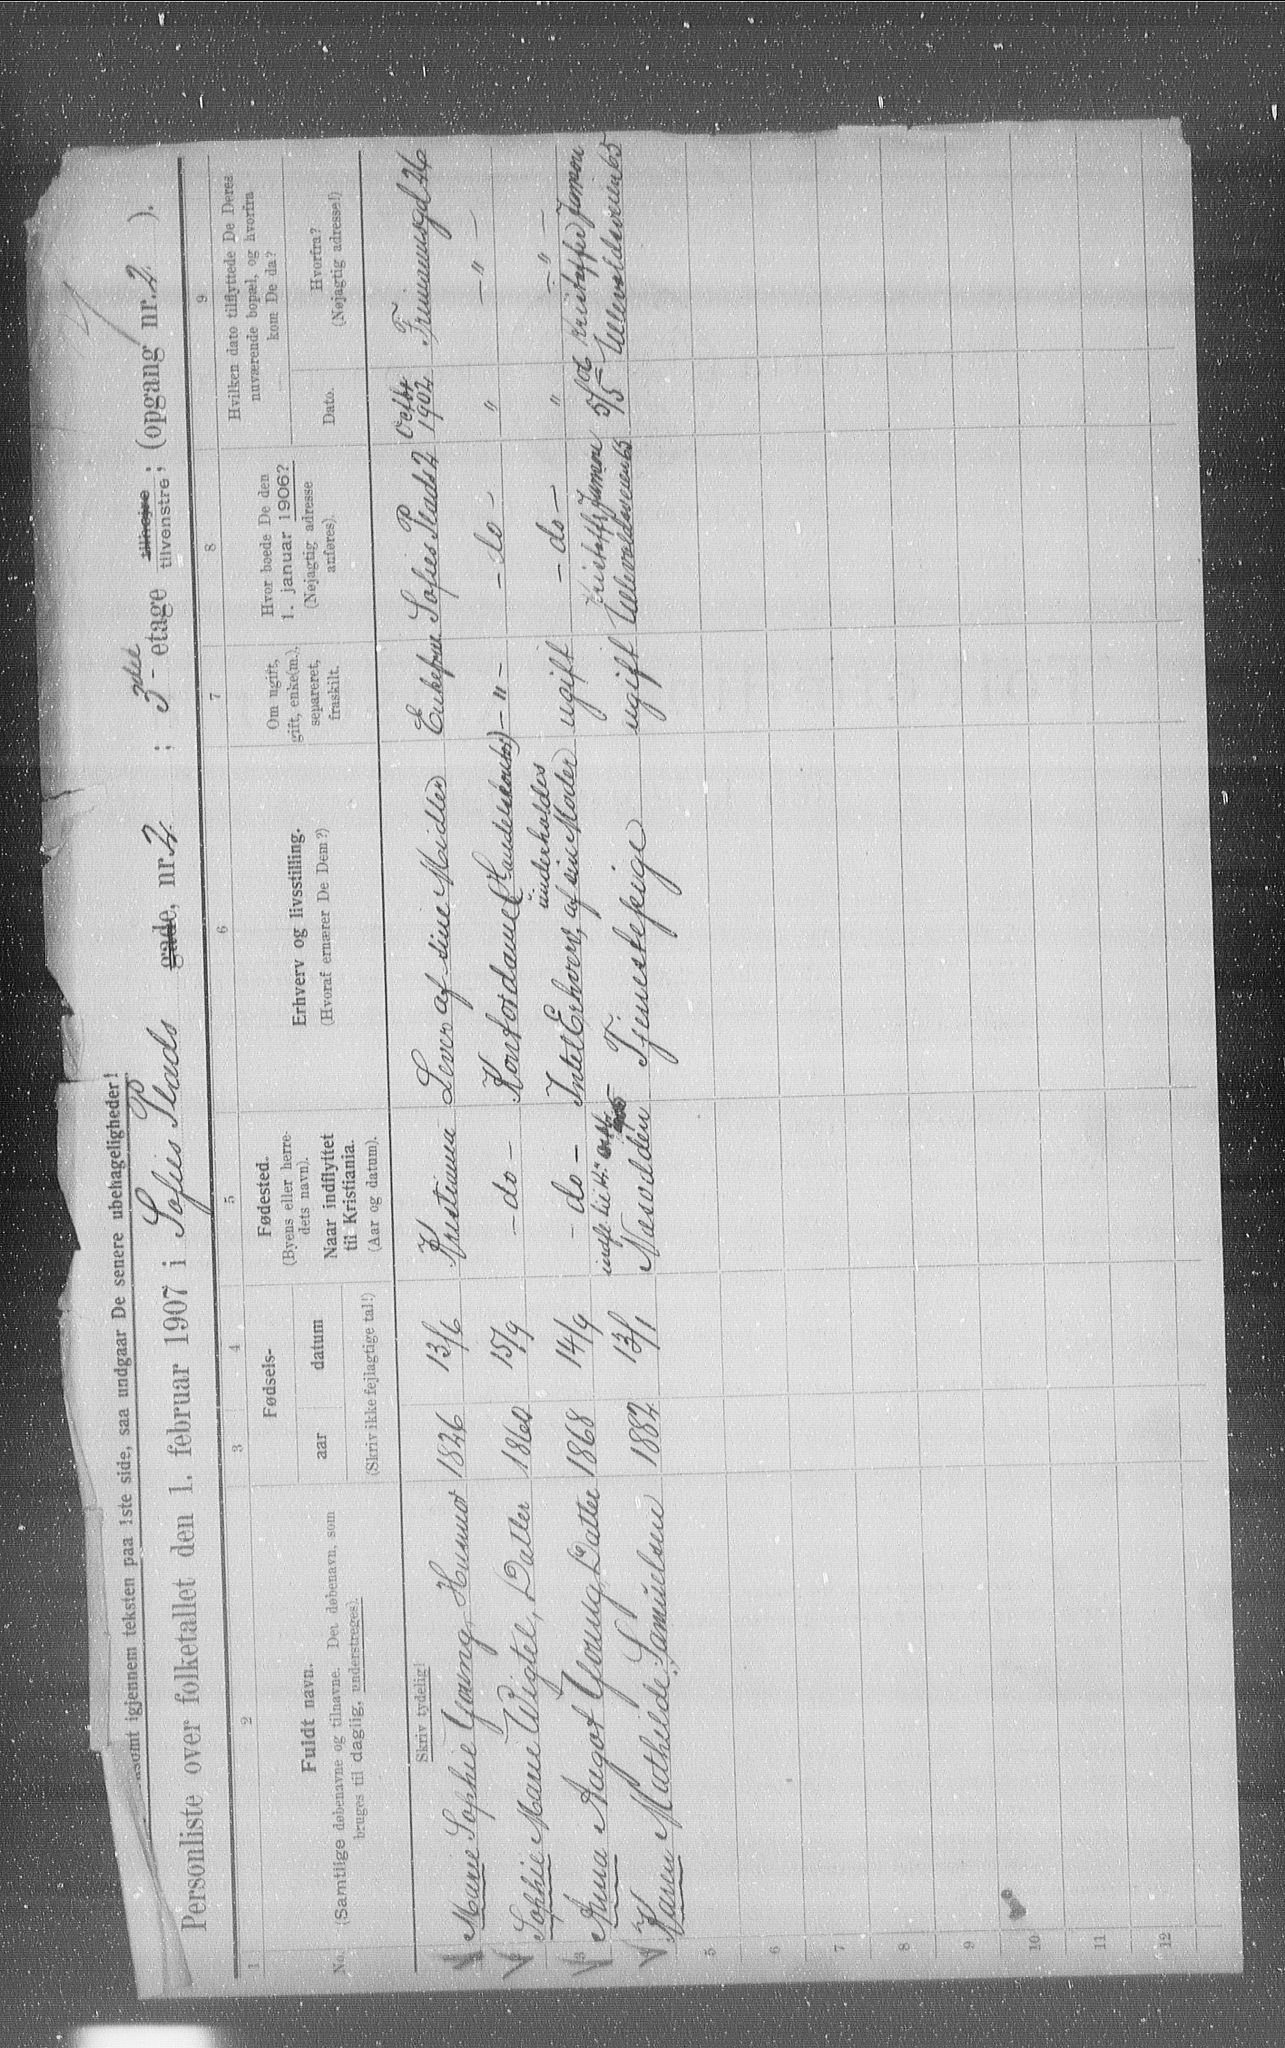 somt igjennem teksten paa 1ste side, saa undgaar De senere ubehageligheder!
Personliste over folketallet den 1. februar 1907 i Sofies Plads gade, nr. 2 ; 3die etage tilhøjre tilvenstre ; (opgang nr. 2 ).
1 2 3 4 5 6 7 8 9
No.
Fuldt navn.
(Samtlige døbenavne og tilnavne. Det døbenavn, som
bruges til daglig, understreges).
Fødsels-
aar datum
(Skriv ikke fejlagtige tal!)
Fødested.
(Byens eller herre-
dets navn).
Naar indflyttet
til Kristiania.
(Aar og datum).
Erhverv og livsstilling.
(Hvoraf ernærer De Dem?)
Om ugift,
gift, enke(m.),
separeret,
fraskilt.
Hvor boede De den
1. januar 1906?
(Nøjagtig adresse
anføres).
Hvilken dato tilflyttede De Deres
nuværende bopæl, og hvorfra
kom De da?
Dato.
Hvorfra?
(Nøjagtig adresse!)
Skriv tydelig!
Marie Sophie Young, Husmor 1826 13/6 Kristiania Lever af sine Midler Enkefru Sofies Plads 2 Octbr 1902 Frimannsgd 26
Sophie Marie Wigtel, Datter 1860 15/9 - do - Kontordame (Handelskontor) - " - - do - " - " -
3 Anna Aagot Young, Datter 1868 14/9 - do - Intet Erhverv, underholdes af sin Moder ugift - do - " - " -
Karen Mathilde Samuelsen 1882 13/1 Næsodden Tjenestepige ugift Kristoffer Jensen Ullevoldsveien 65 5/5 06 Kristoffer Jensen Ullevoldsveien 65
5
6
7
8
9
10
11
12